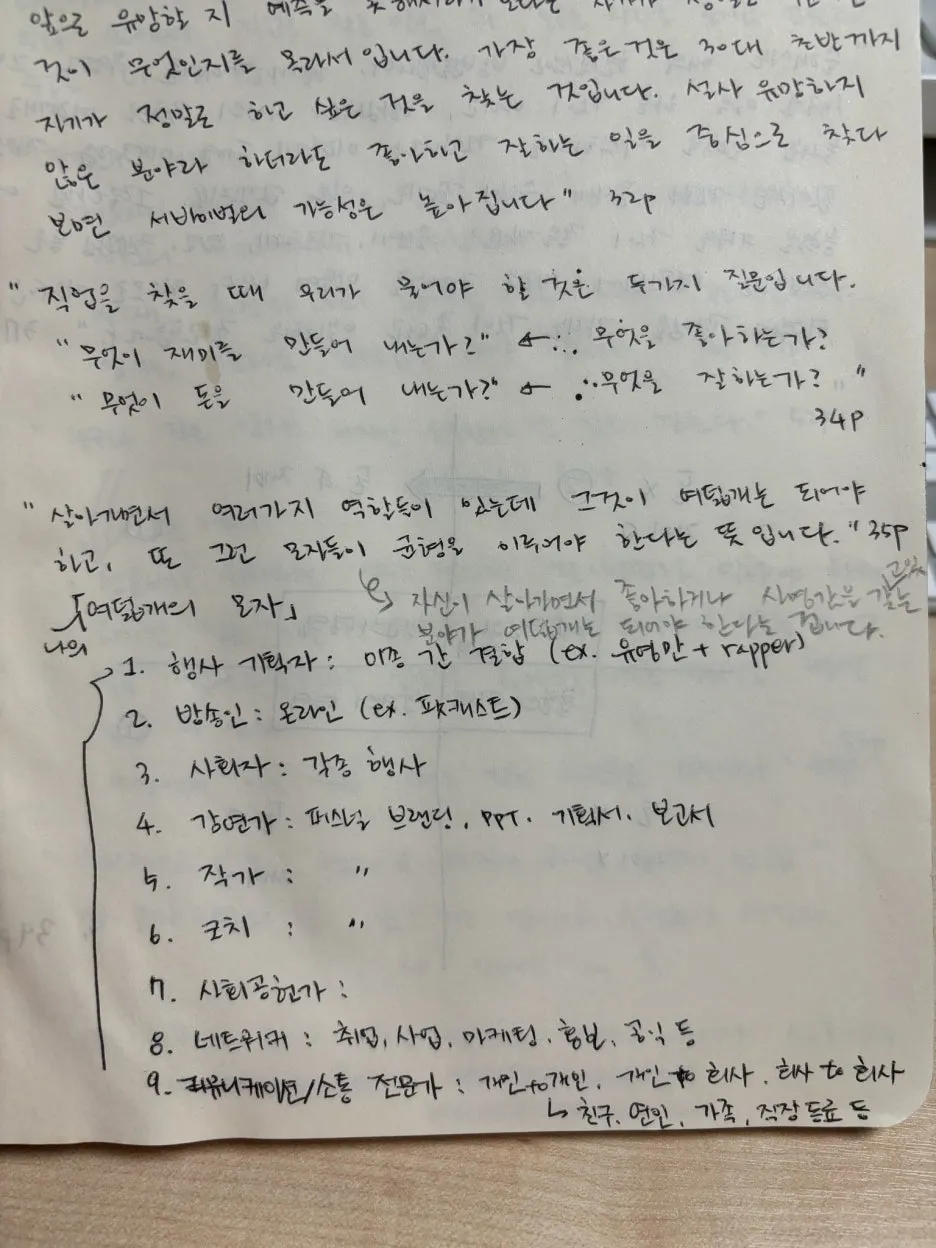 앞으로 유망할 지 예측을 못해서이기 보다는 자기가
것이 무엇인지를 몰라서입니다. 가장 좋은것은 30대 초반까지
자기가 정말로 하고 싶은 것을 찾는 것입니다. 설사 유망하지
않은 분야라 하더라도 좋아하고 잘하는 일을 중심으로 찾다
보면 서바이벌의 가능성은 높아집니다" 32p
" 직업을 찾을 때 우리가 물어야 할 것은 두가지 질문입니다.
" 무엇이 재미를 만들어 내는가?" ← ∴ 무엇을 좋아하는가?
" 무엇이 돈을 만들어 내는가?" ← ∴ 무엇을 잘하는가? "
34p
" 살아가면서 여러가지 역할들이 있는데 그것이 여덟개는 되어야
하고, 또 그런 모자들이 균형을 이루어야 한다는 뜻입니다. " 35p
↳ 자신이 살아가면서 좋아하거나 사명감을 갖는
분야가 여덟개는 되어야 한다는 겁니다.
나의 「여덟개의 모자」
1. 행사 기획자 : 이종 간 결합 (ex. 유영만 + rapper)
2. 방송인 : 온라인 (ex. 팟캐스트)
3. 사회자 : 각종 행사
4. 강연가 : 퍼스널 브랜딩, PPT. 기획서. 보고서
5. 작가 : "
6. 코치 : "
7. 사회공헌가 :
8. 네트워커 : 취업, 사업, 마케팅, 홍보, 공식 등
9. 커뮤니케이션/소통 전문가 : 개인 to 개인, 개인 to 회사, 회사 to 회사
↳ 친구, 연인, 가족, 직장동료 등